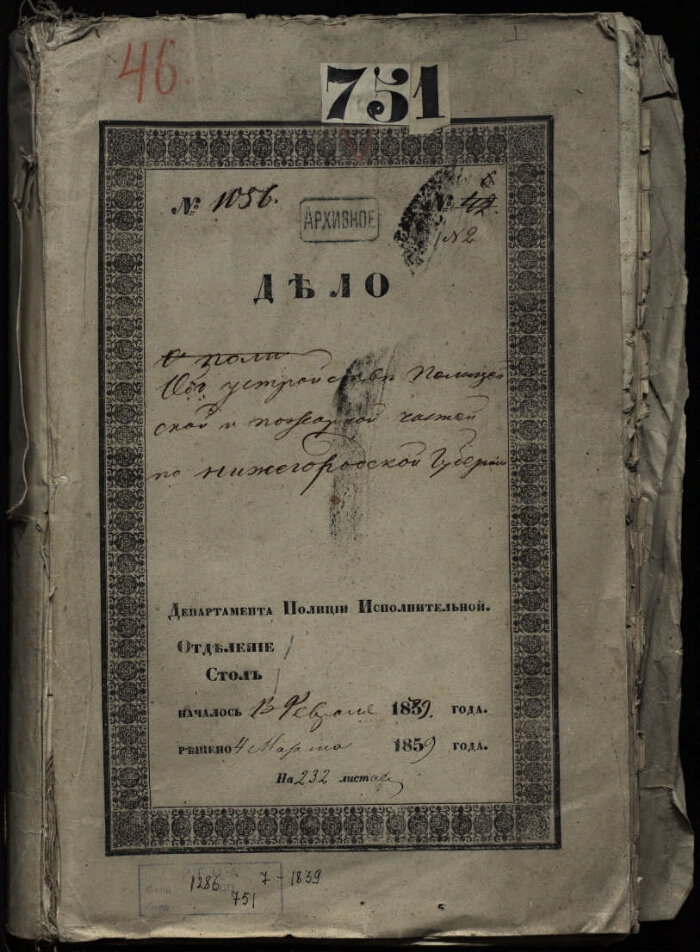 46
751
№ 1056.
АРХИВНОЕ
№ 42.
№ 2
ДѢЛО
О поли
Объ устройствѣ Полицей
ской и пожарной частей
по Нижегородской Губерніи
Департамента Полиціи Исполнительной.
Отдѣленіе 1
Столъ 1
началось 13 Февраля 1839. года.
рѣшено 4 Марта 1859 года.
На 232 листах
1286 7-1839
751